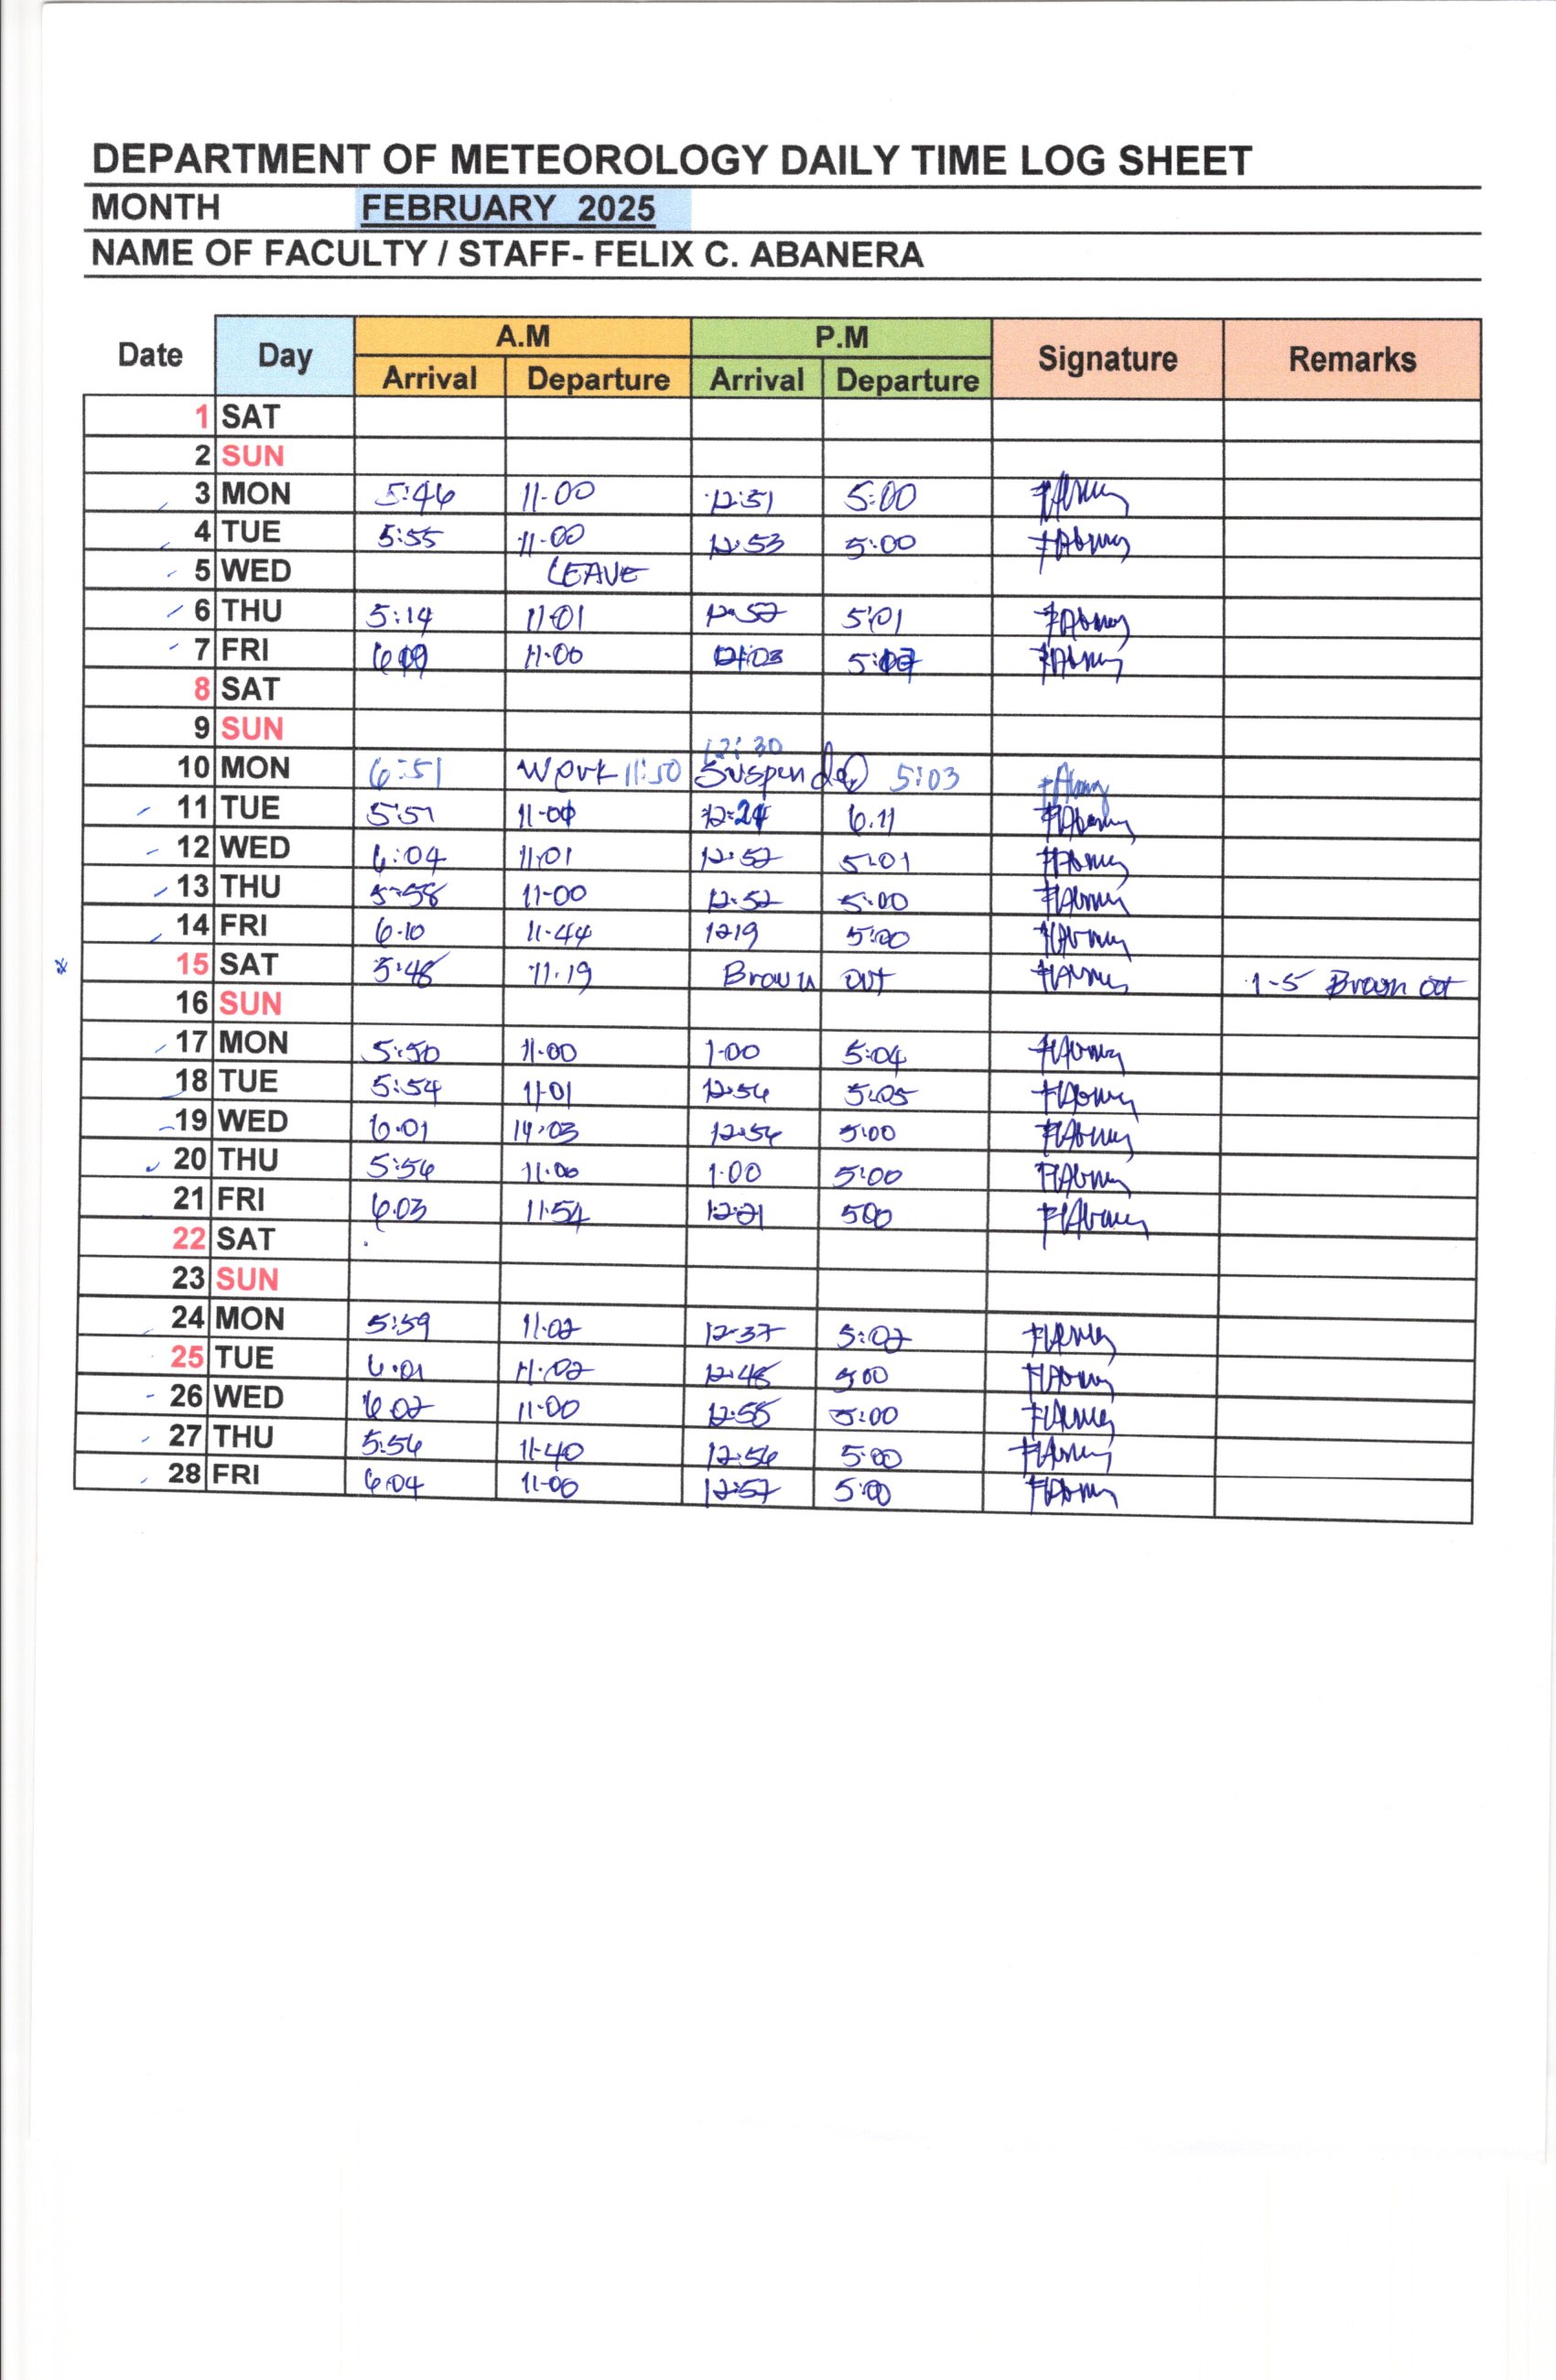 DEPARTMENT OF METEOROLOGY DAILY TIME LOG SHEET
MONTH FEBRUARY 2025
NAME OF FACULTY / STAFF- FELIX C. ABANERA
Date Day A.M P.M Signature Remarks
Arrival Departure Arrival Departure
1 SAT
2 SUN
3 MON 5:46 11-00 12:51 5:00
4 TUE 5:55 11-00 12:53 5:00
5 WED LEAVE
6 THU 5:14 11:01 12:52 5:01
7 FRI 11:00
8 SAT
9 SUN
12:30
10 MON 6:51 Work 11:50 Suspended 5:03
11 TUE 5:51 6.11
12 WED 6:04 11:01 12:52 5:01
13 THU 5:58 11-00 12:52 5:00
14 FRI 6-10 11-44 1219 5:00
15 SAT 5:48 11.19 Brown out 1-5 Brown out
16 SUN
17 MON 5:50 11:00 1:00 5:04
18 TUE 5:54 11-01 12:56 5:05
19 WED 6:01 12:56 5:00
20 THU 5:56 11:00 1:00 5:00
21 FRI 6.03 11:54 12:21 500
22 SAT
23 SUN
24 MON 5:59 11:02 12-37 5:02
25 TUE 6.01 11:02 12:48 500
26 WED 6 02 11-00 12:55 5:00
27 THU 5:56 11-40 12:56 5:00
28 FRI 6:04 11-00 12:57 5:00